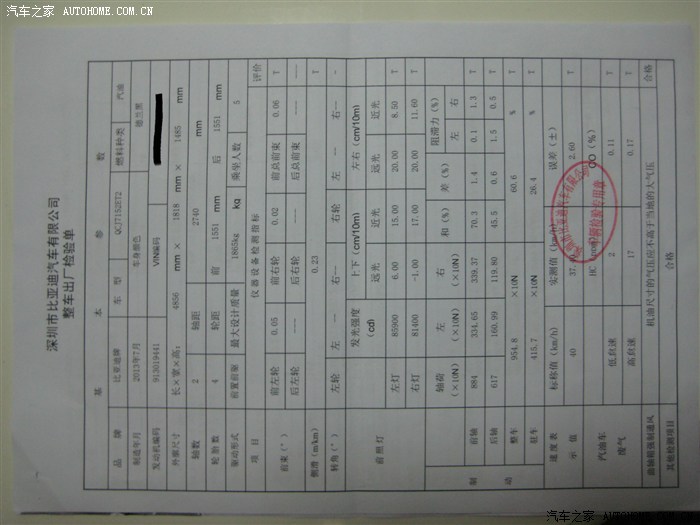 汽车之家 AUTOHOME.COM.CN
深圳市比亚迪汽车有限公司
整车出厂检验单
基 本 参 数
品 牌 比亚迪牌 车 型 QCJ7152ET2 燃料种类 汽油
制造年月 2013年7月 车身颜色 德兰黑
发动机编码 913019441 VIN编码
外廓尺寸 长×宽×高: 4856 mm × 1818 mm × 1485 mm
轴数 2 轴距 2740 mm
轮胎数 4 轮距 前 1551 mm 后 1551 mm
驱动形式 前置前驱 最大设计质量 1865kg kg 乘坐人数 5
仪器设备检测指标
项 目 评价
前束(°) 前左轮 0.05 前右轮 0.02 前总前束 0.06 T
后左轮 ---- 后右轮 ---- 后总前束 ---- ----
侧滑(m/km) 0.23 T
转角(°) 左轮 左 — 右— 右轮 左 — 右— -
前照灯 发光强度(cd) 上下(cm/10m) 左右(cm/10m)
远光 近光 远光 近光
左灯 85900 6.00 15.00 20.00 8.50 T
右灯 81400 -1.00 17.00 20.00 11.60 T
制动 轴荷(×10N) 左(×10N) 右(×10N) 和(%) 差(%) 阻滞力(%)
左 右
前轴 884 334.65 339.37 70.3 1.4 0.1 1.3 T
后轴 617 160.99 119.80 45.5 0.6 1.5 0.5 T
整车 954.8 ×10N 60.6 % T
驻车 415.7 ×10N 26.4 % T
速度表 标称值(km/h) 实测值(km/h) 误差(±)
示 值 40 2.60 T
汽油车废气 HC CO(%)
低怠速 2 0.11 T
高怠速 17 0.17 T
曲轴箱强制通风 机油尺寸的气压应不高于当地的大气压 合格
其他检测项目 合格
汽车之家 AUTOHOME.COM.CN